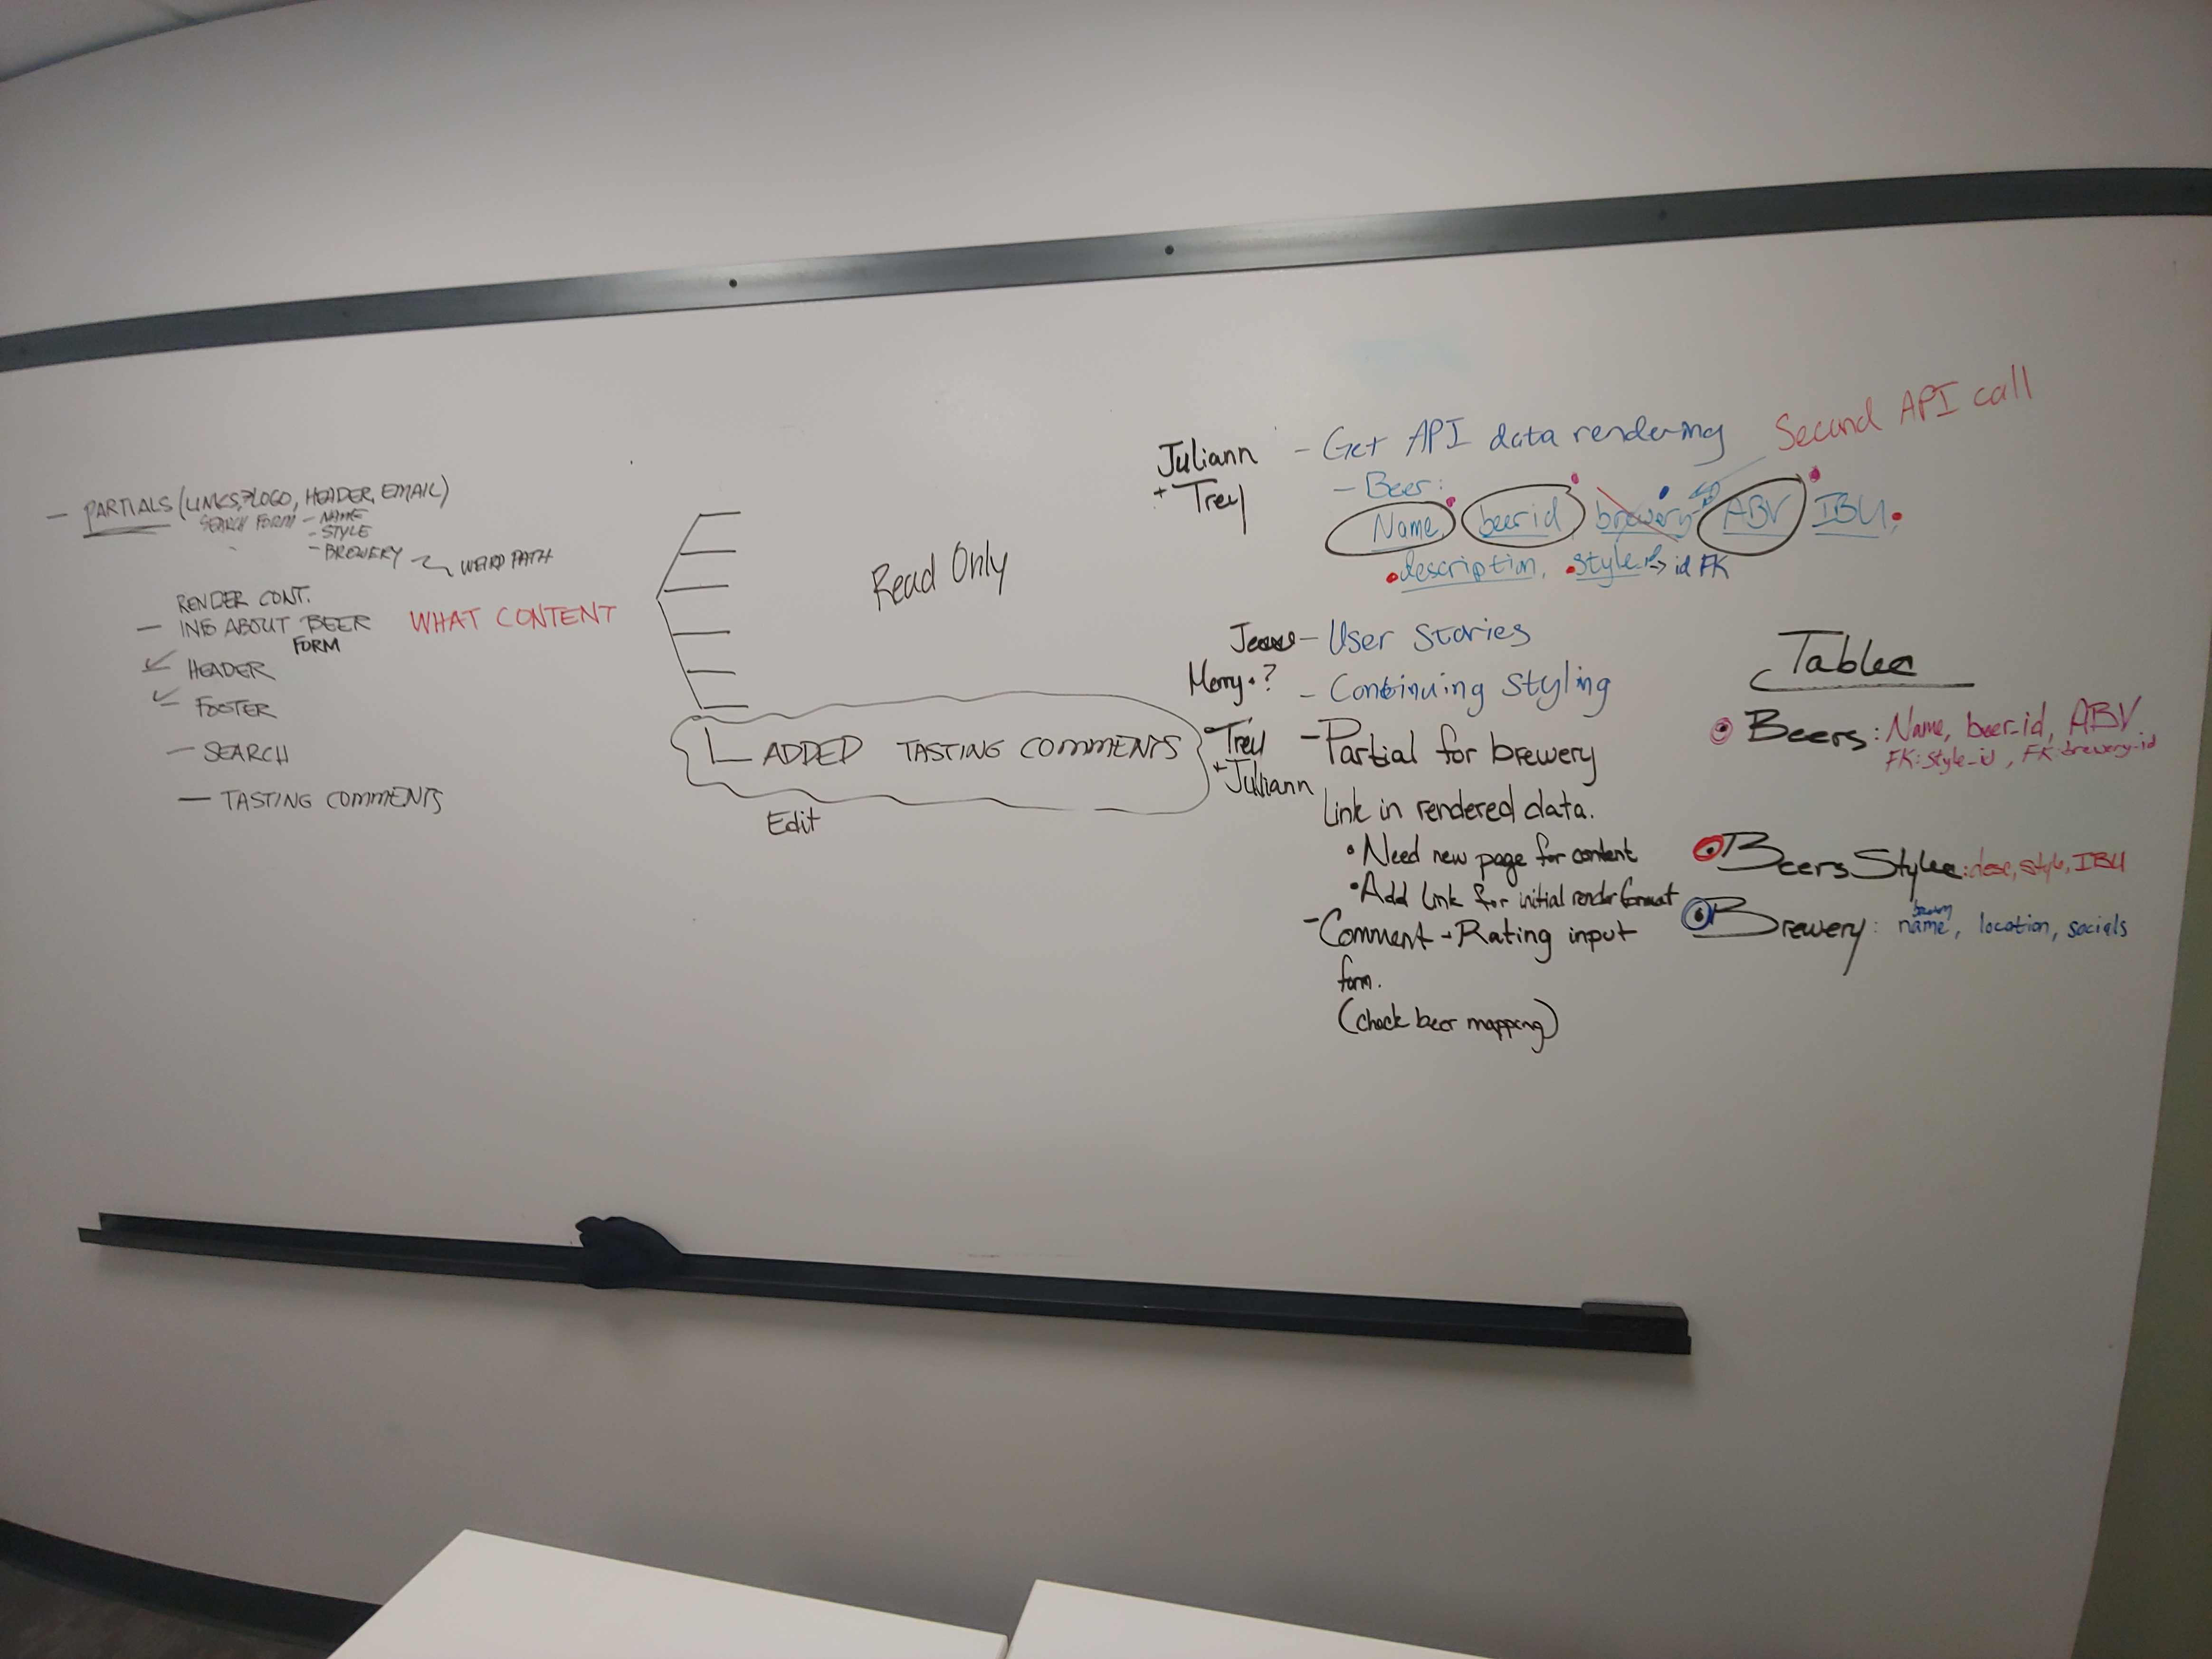 — PARTIALS (LINKS, LOGO, HEADER, EMAIL)
SEARCH FORM - NAME
- STYLE
- BREWERY WEIRD PATH
RENDER CONT.
— ABOUT BEER
FORM
WHAT CONTENT
✓ HEADER
✓ FOOTER
— SEARCH
— TASTING COMMENTS
Read Only
ADDED TASTING COMMENTS
Edit
Juliann
+ Trey
- Get API data rendering
Second API call
- Beer:
Name, beer id, brewery ABV IBU
description, style → id FK
- User Stories
Merry ?
- Continuing Styling
Trey
+ Juliann
- Partial for brewery
Link in rendered data.
• Need new page for content
• Add link for initial render format
- Comment + Rating input
form.
(check beer mapping)
Tables
Beers: Name, beer_id, ABV
FK: style_id, FK: brewery_id
Beers Style: desc, style, IBU
Brewery: name, location, socials